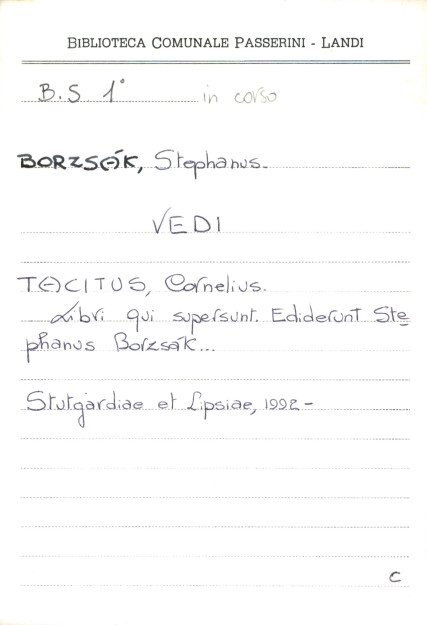 BIBLIOTECA COMUNALE PASSERINI - LANDI
B.S 1° in corso
BORZSÁK, Stephanus.
VEDI
TACITUS, Cornelius.
Libri qui supersunt. Ediderunt Ste
phanus Borzsák...
Stutgardiae et Lipsiae, 1992 -
C